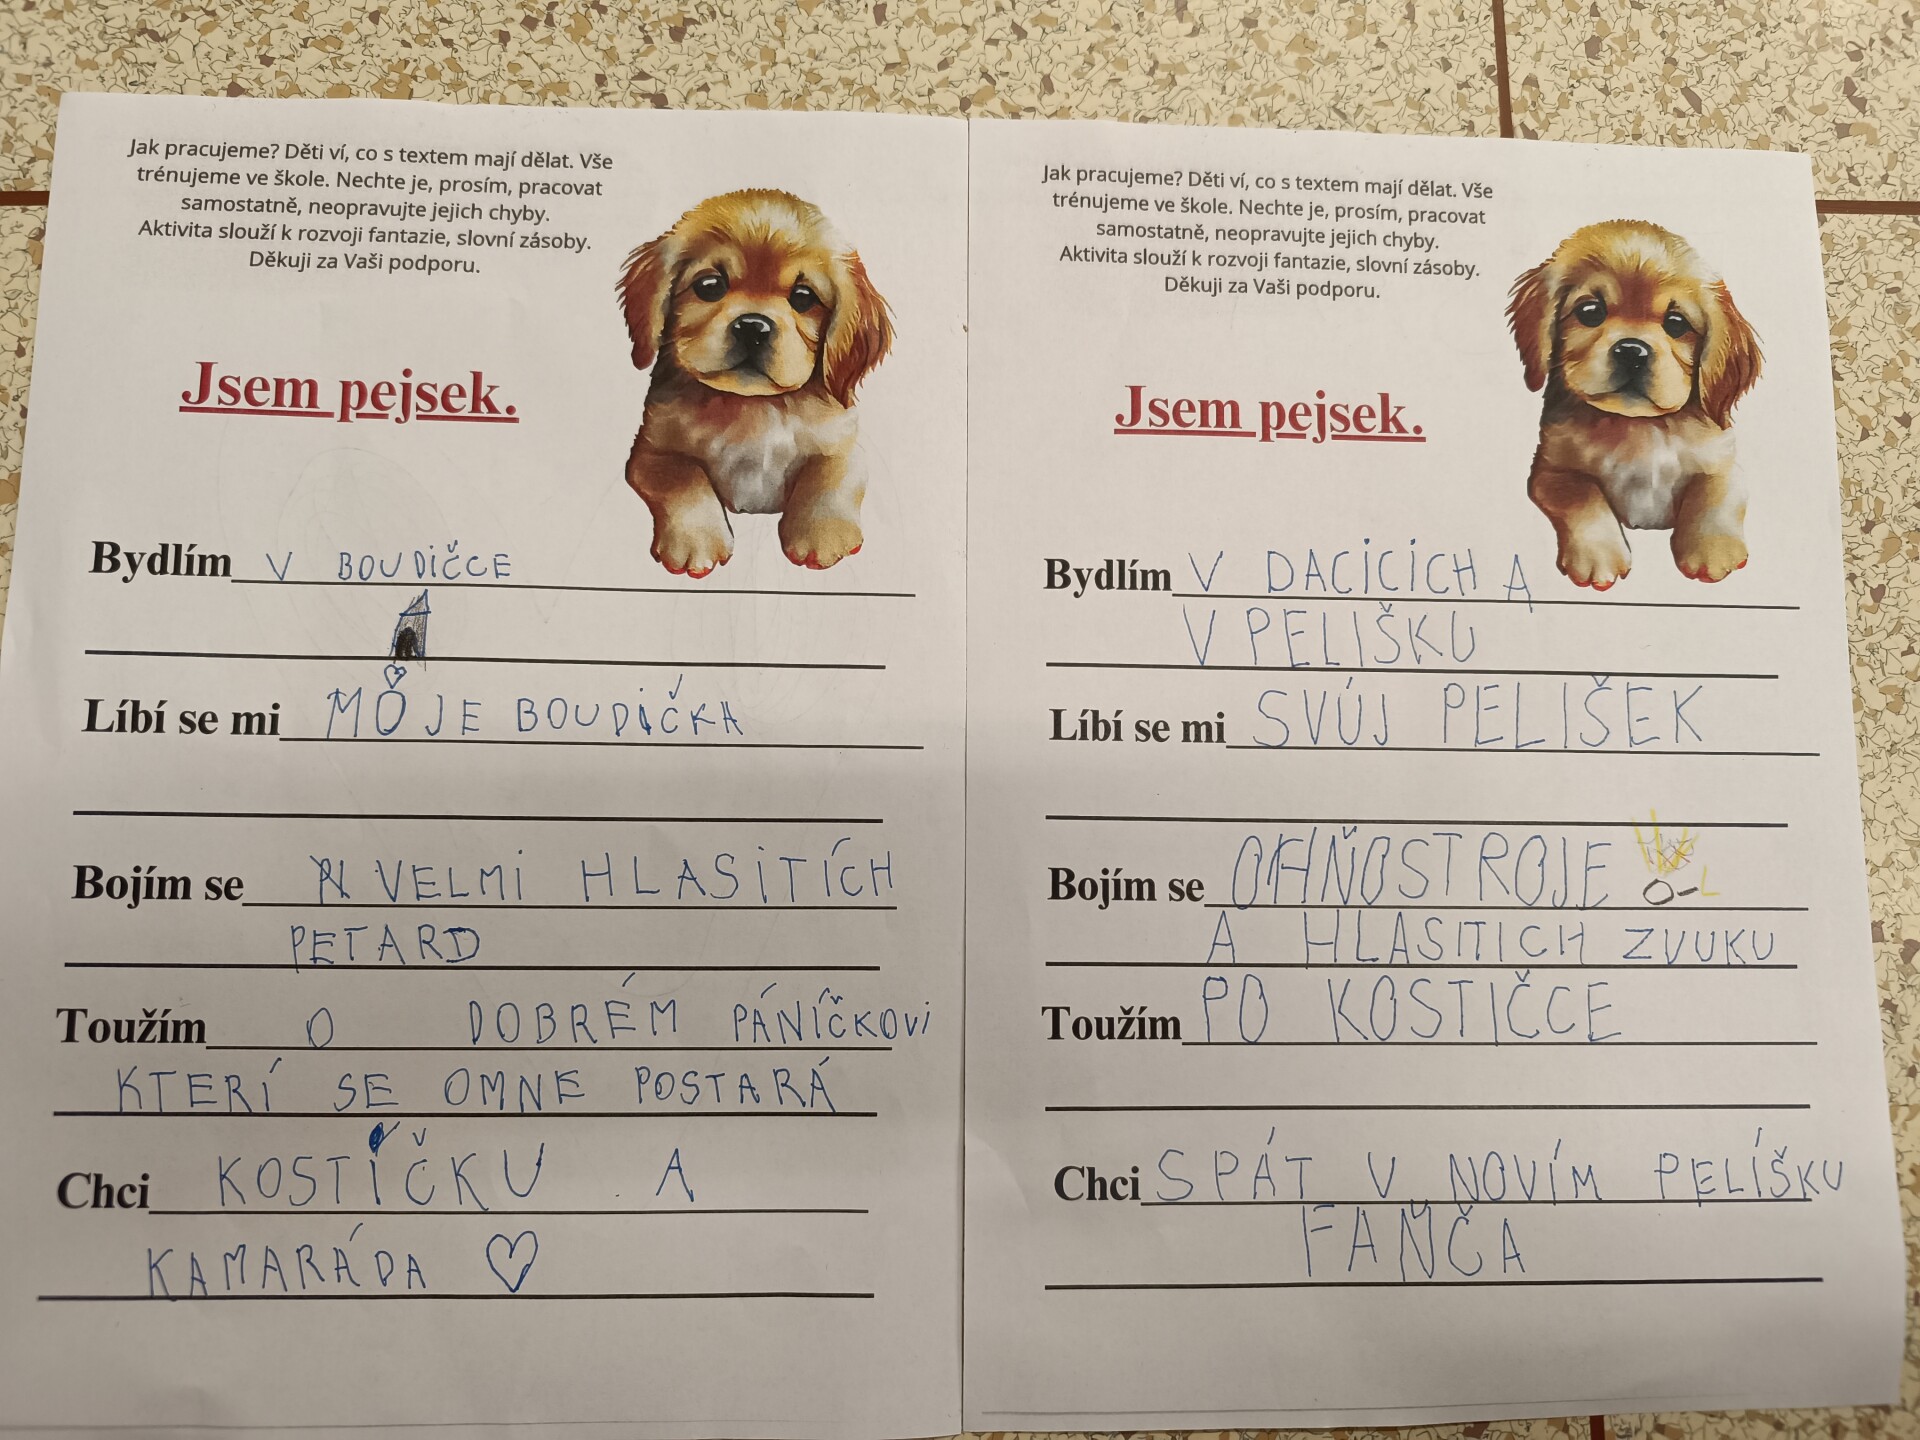 Jak pracujeme? Děti ví, co s textem mají dělat. Vše
trénujeme ve škole. Nechte je, prosím, pracovat
samostatně, neopravujte jejich chyby.
Aktivita slouží k rozvoji fantazie, slovní zásoby.
Děkuji za Vaši podporu.
Jsem pejsek.
Bydlím V BOUDIČCE
Líbí se mi MOJE BOUDIČKA
Bojím se VELMI HLASITÍCH
PETARD
Toužím O DOBRÉM PÁNÍČKOVI
KTERÍ SE OMNE POSTARÁ
Chci KOSTÍČKU A
KAMARÁDA
Jak pracujeme? Děti ví, co s textem mají dělat. Vše
trénujeme ve škole. Nechte je, prosím, pracovat
samostatně, neopravujte jejich chyby.
Aktivita slouží k rozvoji fantazie, slovní zásoby.
Děkuji za Vaši podporu.
Jsem pejsek.
Bydlím V DACICICH A
V PELIŠKU
Líbí se mi SVÚJ PELIŠEK
Bojím se OHŇOSTROJE
A HLASITICH ZVUKU
Toužím PO KOSTIČCE
Chci SPÁT V NOVÍM PELÍŠKU
FAŇČA